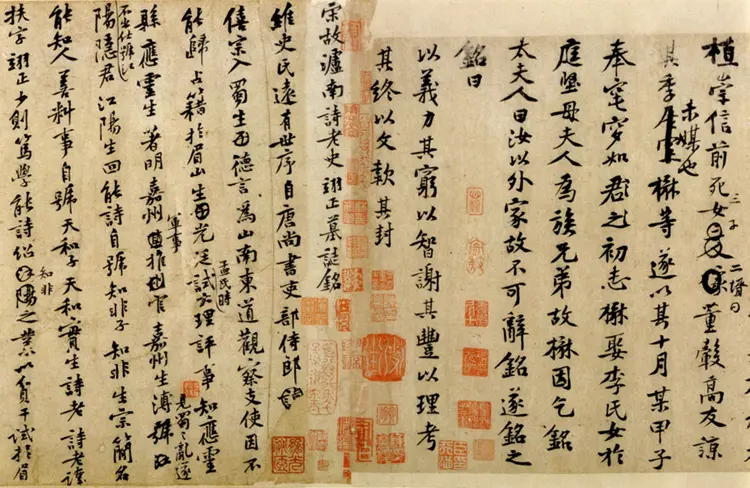 植崇信前死女三子二壻曰董瑴高友諒
其季未媒也楙等遂以其十月某甲子
奉窀穸如君之初志楙娶李氏女於
庭堅母夫人為族兄弟故楙因乞銘
太夫人曰汝以外家故不可辭銘遂銘之
銘曰
以義力其窮以智謝其豐以理考
其終以文款其封
宋故瀘南詩老史翊正墓誌銘
維史氏遠有世序自唐尚書吏部侍郎
僖宗入蜀生德言為山南東道觀察支使因不
能歸占籍於眉山生光廷孟氏時試大理評事知應靈
縣應靈生著明嘉州軍事推官嘉州生溥見蜀之亂遂
不出仕號江陽隱君江陽生回能詩自號知非子知非生宗簡名
能知人善料事自號天和子天和實生詩老詩老諱
扶字翊正少則篤學能詩紹知非之業以貢干試於眉